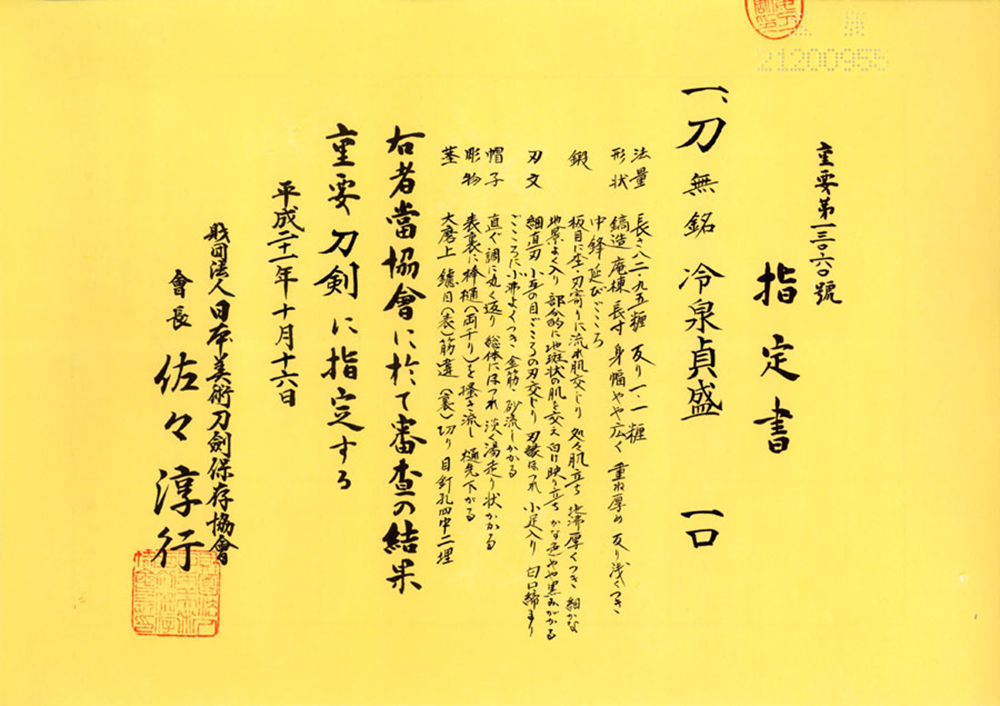 21200955
重要第一三〇六〇號
指定書
一、刀 無銘 冷泉貞盛 一口
法量 長さ八二・九五糎 反り一・一糎
形状 鎬造 庵棟 長寸 身幅やや広く 重ね厚め 反り浅くつき
中鋒延びごころ
鍛 板目に杢・刃寄りに流れ肌交じり 処々肌立ち 地沸厚くつき 細かな
地景よく入り 部分的に地斑状の肌を交え 白け映り立ち かな色やや黒みがかる
刃文 細直刃 小互の目ごころの刃交じり 刃縁ほつれ 小足入り 匂口締まり
ごころに小沸よくつき 金筋・砂流しかかる
帽子 直ぐ調に丸く返り 総体にほつれ 淡く湯走り状かかる
彫物 表裏に棒樋(両チリ)を掻き流し 樋先下がる
茎 大磨上 鑢目(表)筋違(裏)切り 目釘孔四中二埋
右者當協會に於て審査の結果
重要刀剣に指定する
平成二十一年十月十六日
財団法人日本美術刀劍保存協會
會長 佐々淳行